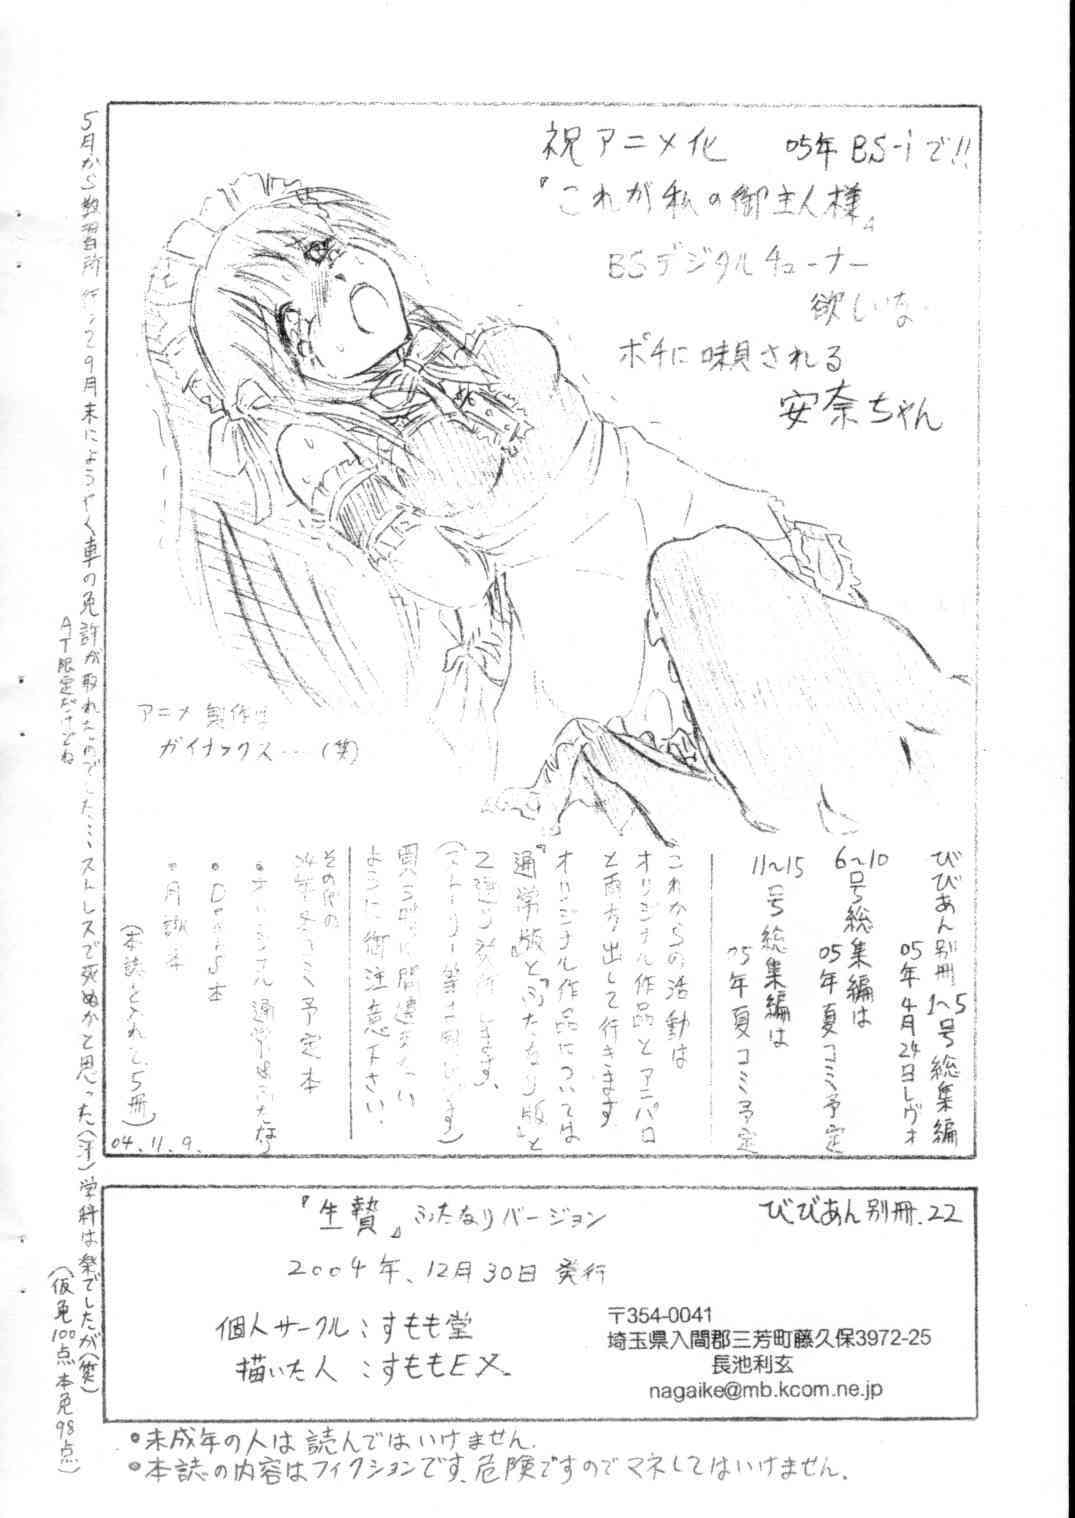 祝アニメ化 05年BS-iで!!
『これが私の御主人様』
BSデジタルチューナー
欲しいな
ポチに唄される
安奈ちゃん
アニメ製作は
ガイナックス…(笑)
びびあん別冊1~5号総集編
05年4月24日レヴォ
6~10号総集編は
05年夏コミ予定
11~15号総集編は
05年夏コミ予定
これからの活動は
オリジナル作品とアニパロ
と両方出して行きます
オリジナル作品については
『通常版』と『ふたなり版』と
2種り製作します。
(ストーリー等は同じです)
買う時に間違えない
ように御注意下さい.
その他の
04年冬コミ予定本
・オリジナル通常版ふたなり
・DOGS本
・月謝本
(本誌と入れて、5冊)
04.11.9.
5月から教習所行って9月末にようやく車の免許が取れたのでした…ストレスで死ぬかと思った(汗)学科は楽でしたが(笑)
AT限定だけどね
(仮免100点本免98点)
びびあん別冊.22
『生贄』ふたなりバージョン
2004年、12月30日発行
個人サークル:すもも堂
描いた人:すももEX
〒354-0041
埼玉県入間郡三芳町藤久保3972-25
長池利玄
nagaike@mb.kcom.ne.jp
・未成年の人は読んではいけません.
・本誌の内容はフィクションです、危険ですのでマネしてはいけません.